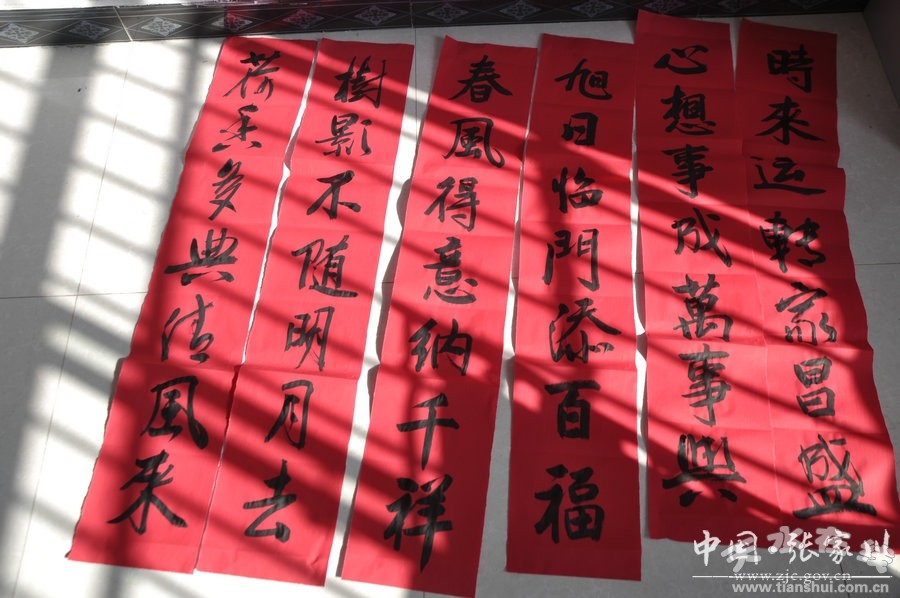 時來运轉家昌盛
心想事成萬事興
旭日临門添百福
春風得意纳千祥
樹影不随明月去
荷香多與清風来
中国·张家川
www.zjc.gov.cn
www.tianshui.com.cn